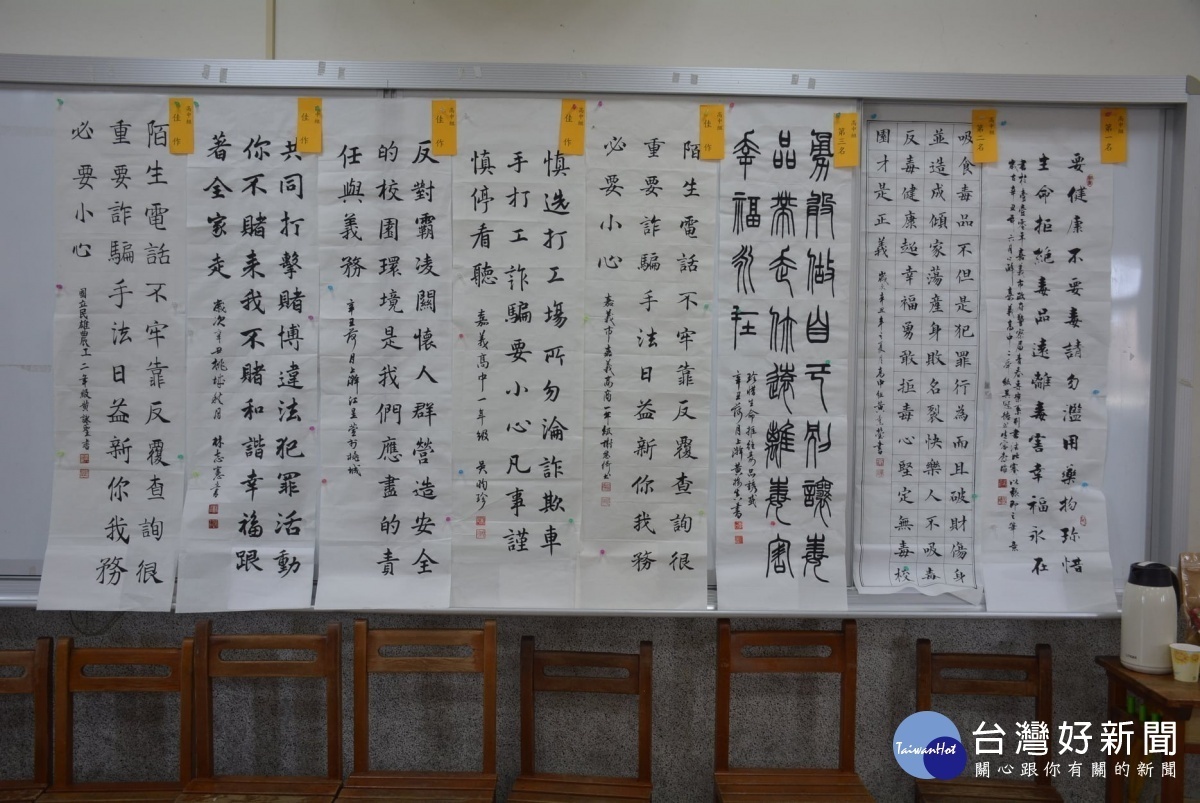 高中組
第一名
要健康不要毒請勿濫用藥物珍惜
生命拒絕毒品遠離毒害幸福永在
高中組
第二名
吸食毒品不但是犯罪行為而且破財傷身
並造成傾家蕩產身敗名裂快樂人不吸毒
反毒健康超幸福勇敢拒毒心堅定無毒校
園才是正義
高中組
第三名
勇敢做自己別讓毒
品帶走你遠離毒害
幸福永在
珍惜生命拒絕毒品
辛丑荷月上澣黃
書
佳作
陌生電話不牢靠反覆查詢很
重要詐騙手法日益新你我務
必要小心
嘉義市嘉義高商
高中組
佳作
慎選打工場所勿淪詐欺車
手打工詐騙要小心凡事謹
慎停看聽
嘉義高中一年級 吳昀珍
高中組
佳作
反對霸凌關懷人群營造安全
的校園環境是我們應盡的責
任與義務
辛丑荷月上澣江
高中組
佳作
共同打擊賭博違法犯罪活動
你不賭來我不賭和諧幸福跟
著全家走
歲次辛丑桃城秋月 林志憲書
高中組
佳作
陌生電話不牢靠反覆查詢很
重要詐騙手法日益新你我務
必要小心
國立民雄農工二年級黃
TaiwanHot
台灣好新聞
關心跟你有關的新聞